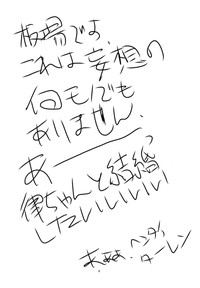 板場でよ
これは妄想の
何モノでも
ありません、
あ――――っ
律ちゃんと結婚
したいいいいい
ヘンダ
ターレン